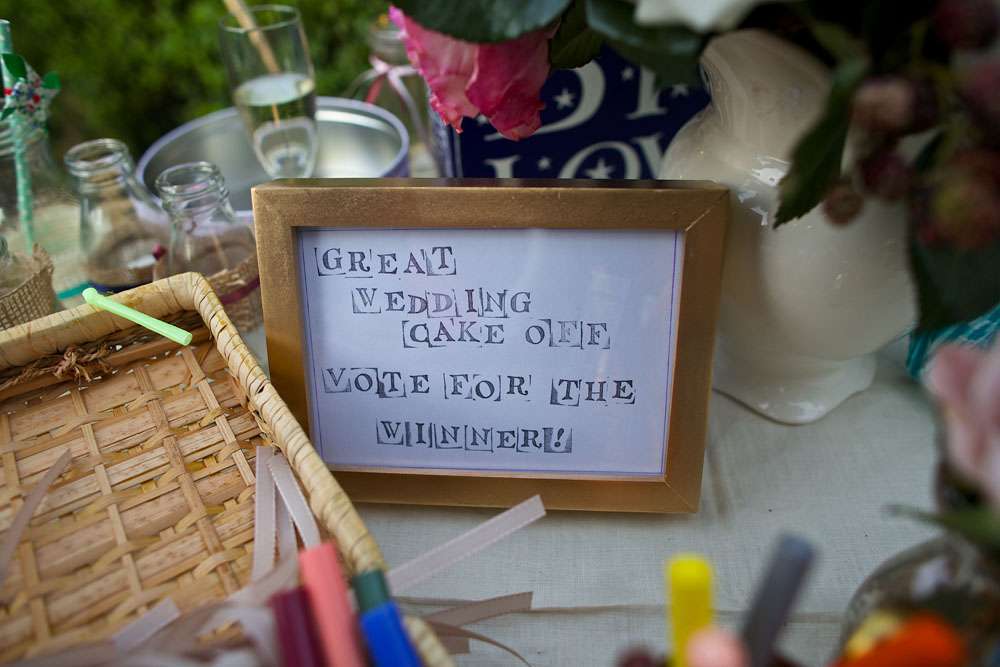 GREAT
WEDDING
CAKE OFF
VOTE FOR THE
WINNER!